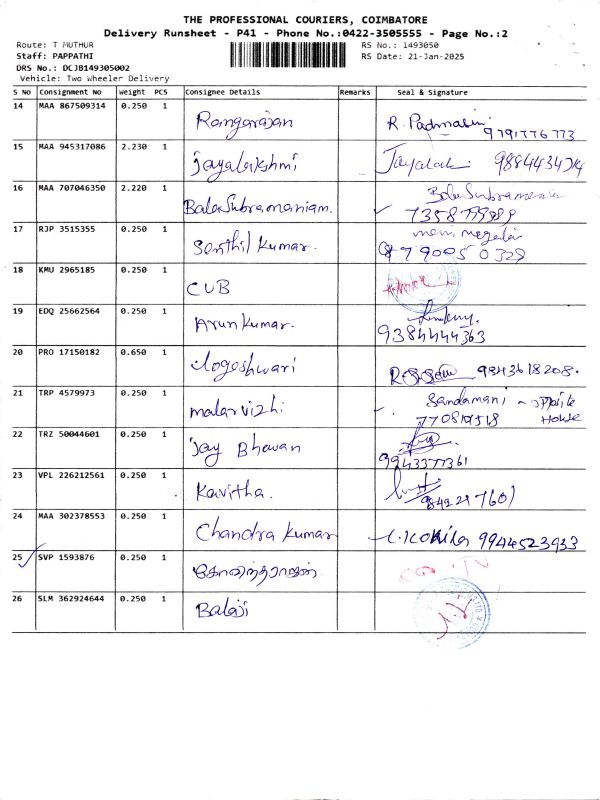 THE PROFESSIONAL COURIERS, COIMBATORE
Delivery Runsheet - P41 - Phone No.:0422-3505555 - Page No.:2
Route: T MUTHUR
RS No.: 1493050
Staff: PAPPATHI
RS Date: 21-Jan-2025
DRS No.: DCJB149305002
Vehicle: Two Wheeler Delivery
S No Consignment No Weight PCS Consignee Details Remarks Seal & Signature
14 MAA 867509314 0.250 1 Rangarajan R. Padmasini 9791776773
15 MAA 945317086 2.230 1 Jayalakshmi Jayalak
16 MAA 707046350 2.220 1 BalaSubramaniam.
17 RJP 3515355 0.250 1 Senthil Kumar.
18 KMU 2965185 0.250 1 CUB
19 EDQ 25662564 0.250 1 Arunkumar. 9384444363
20 PRO 17150182 0.650 1 Yogeshwari 9943618208.
21 TRP 4579973 0.250 1 malarvizhi Sandamani - opposite
House
22 TRZ 50044601 0.250 1 Jay Bhavan 9943377361
23 VPL 226212561 0.250 1 Kavitha.
24 MAA 302378553 0.250 1 Chandra Kumar 9944523933
25 SVP 1593876 0.250 1
26 SLM 362924644 0.250 1 Balaji